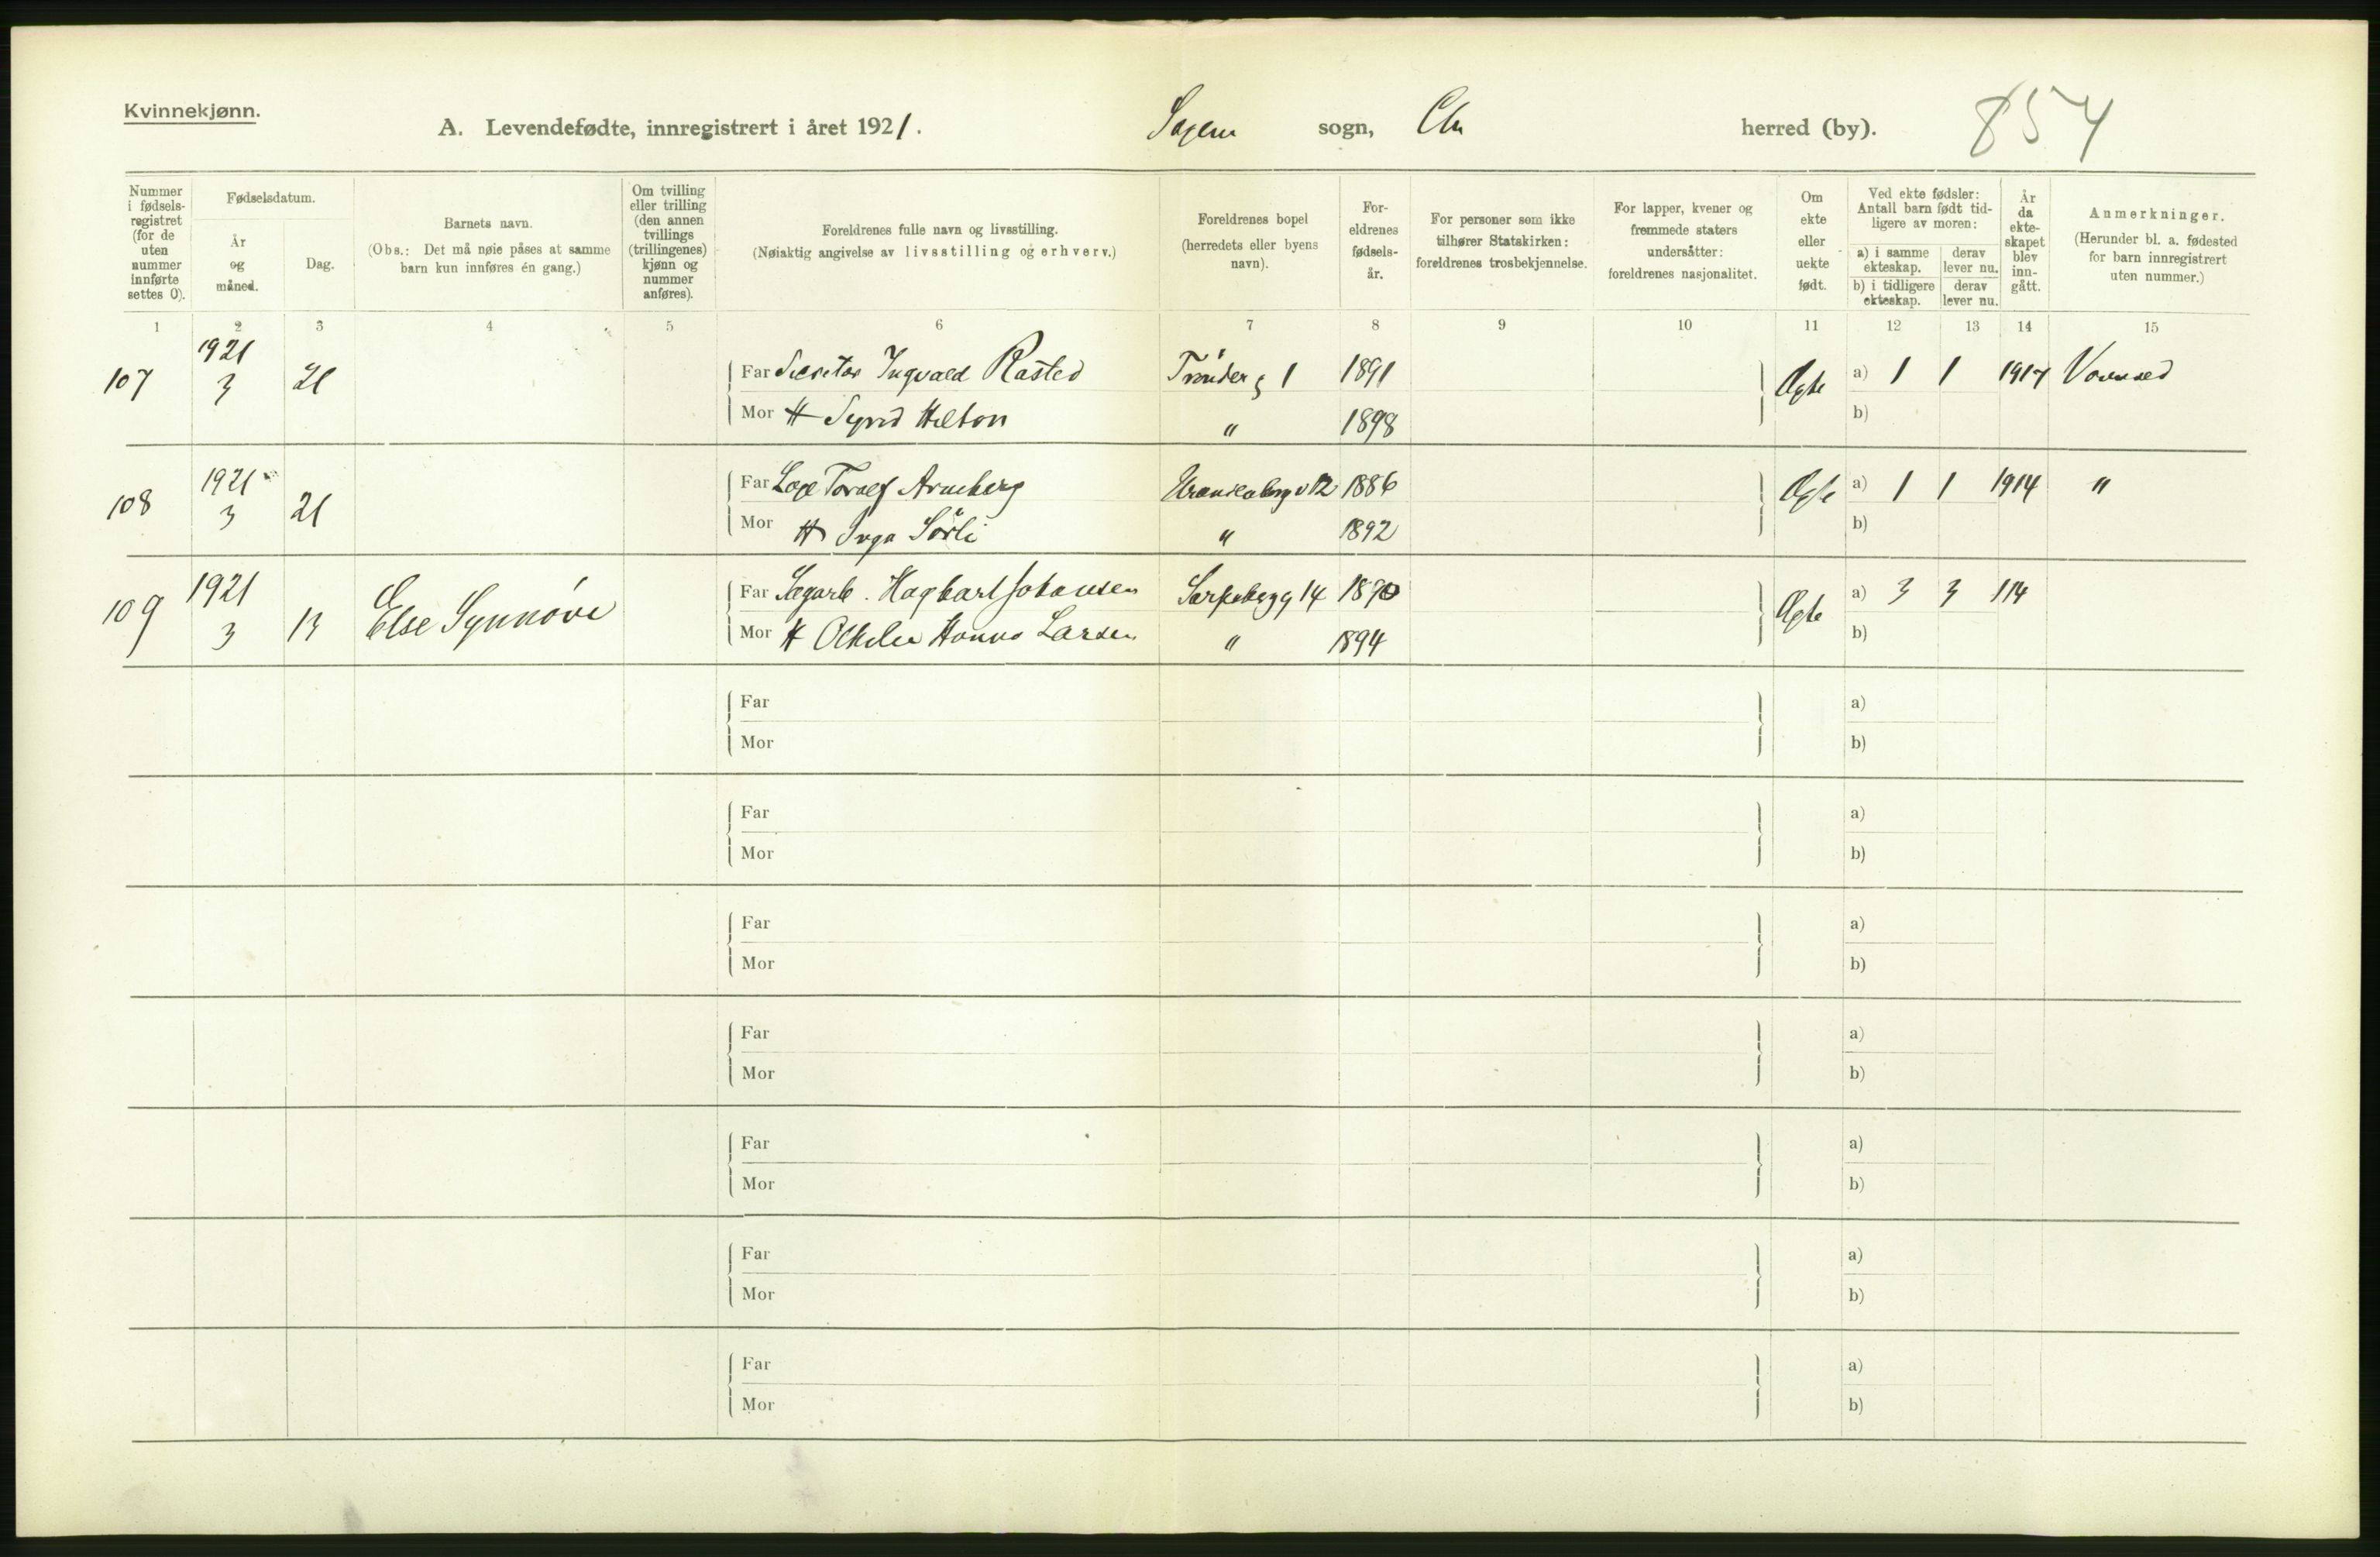 Kvinnekjønn.
A. Levendefødte, innregistrert i året 1921. Sagene sogn, Chr herred (by). 854
Nummer i fødsels-registret (for de uten nummer innførte settes 0).
Fødselsdatum.
År og måned.
Dag.
Barnets navn.
(Obs.: Det må nøie påses at samme barn kun innføres én gang.)
Om tvilling eller trilling (den annen tvillings (trillingenes) kjønn og nummer anføres).
Foreldrenes fulle navn og livsstilling.
(Nøiaktig angivelse av livsstilling og erhverv.)
Foreldrenes bopel
(herredets eller byens navn).
For-eldrenes fødsels-år.
For personer som ikke tilhører Statskirken: foreldrenes trosbekjennelse.
For lapper, kvener og fremmede staters undersåtter: foreldrenes nasjonalitet.
Om ekte eller uekte født.
Ved ekte fødsler: Antall barn født tid-ligere av moren:
a) i samme ekteskap.
derav lever nu.
b) i tidligere ekteskap.
derav lever nu.
År da ekte-skapet blev inn-gått.
Anmerkninger.
(Herunder bl. a. fødested for barn innregistrert uten nummer.)
1 2 3 4 5 6 7 8 9 10 11 12 13 14 15
107 1921 3 21 Far Secretær Ingvald Råsted Trønderg 1 1891 Ægte a) 1 1 1917
Mor H Sigrid Hilton " 1898 b)
108 1921 3 21 Far Toralf Arneberg 12 1886 Ægte a) 1 1 1914 "
Mor H Inga Sörli " 1892 b)
109 1921 3 13 Else Synnöve Far Hagbart Johansen Sarpsborgg 14 1890 Ægte a) 3 3 114
Mor H Hanna Larsen " 1894 b)
Far a)
Mor b)
Far a)
Mor b)
Far a)
Mor b)
Far a)
Mor b)
Far a)
Mor b)
Far a)
Mor b)
Far a)
Mor b)